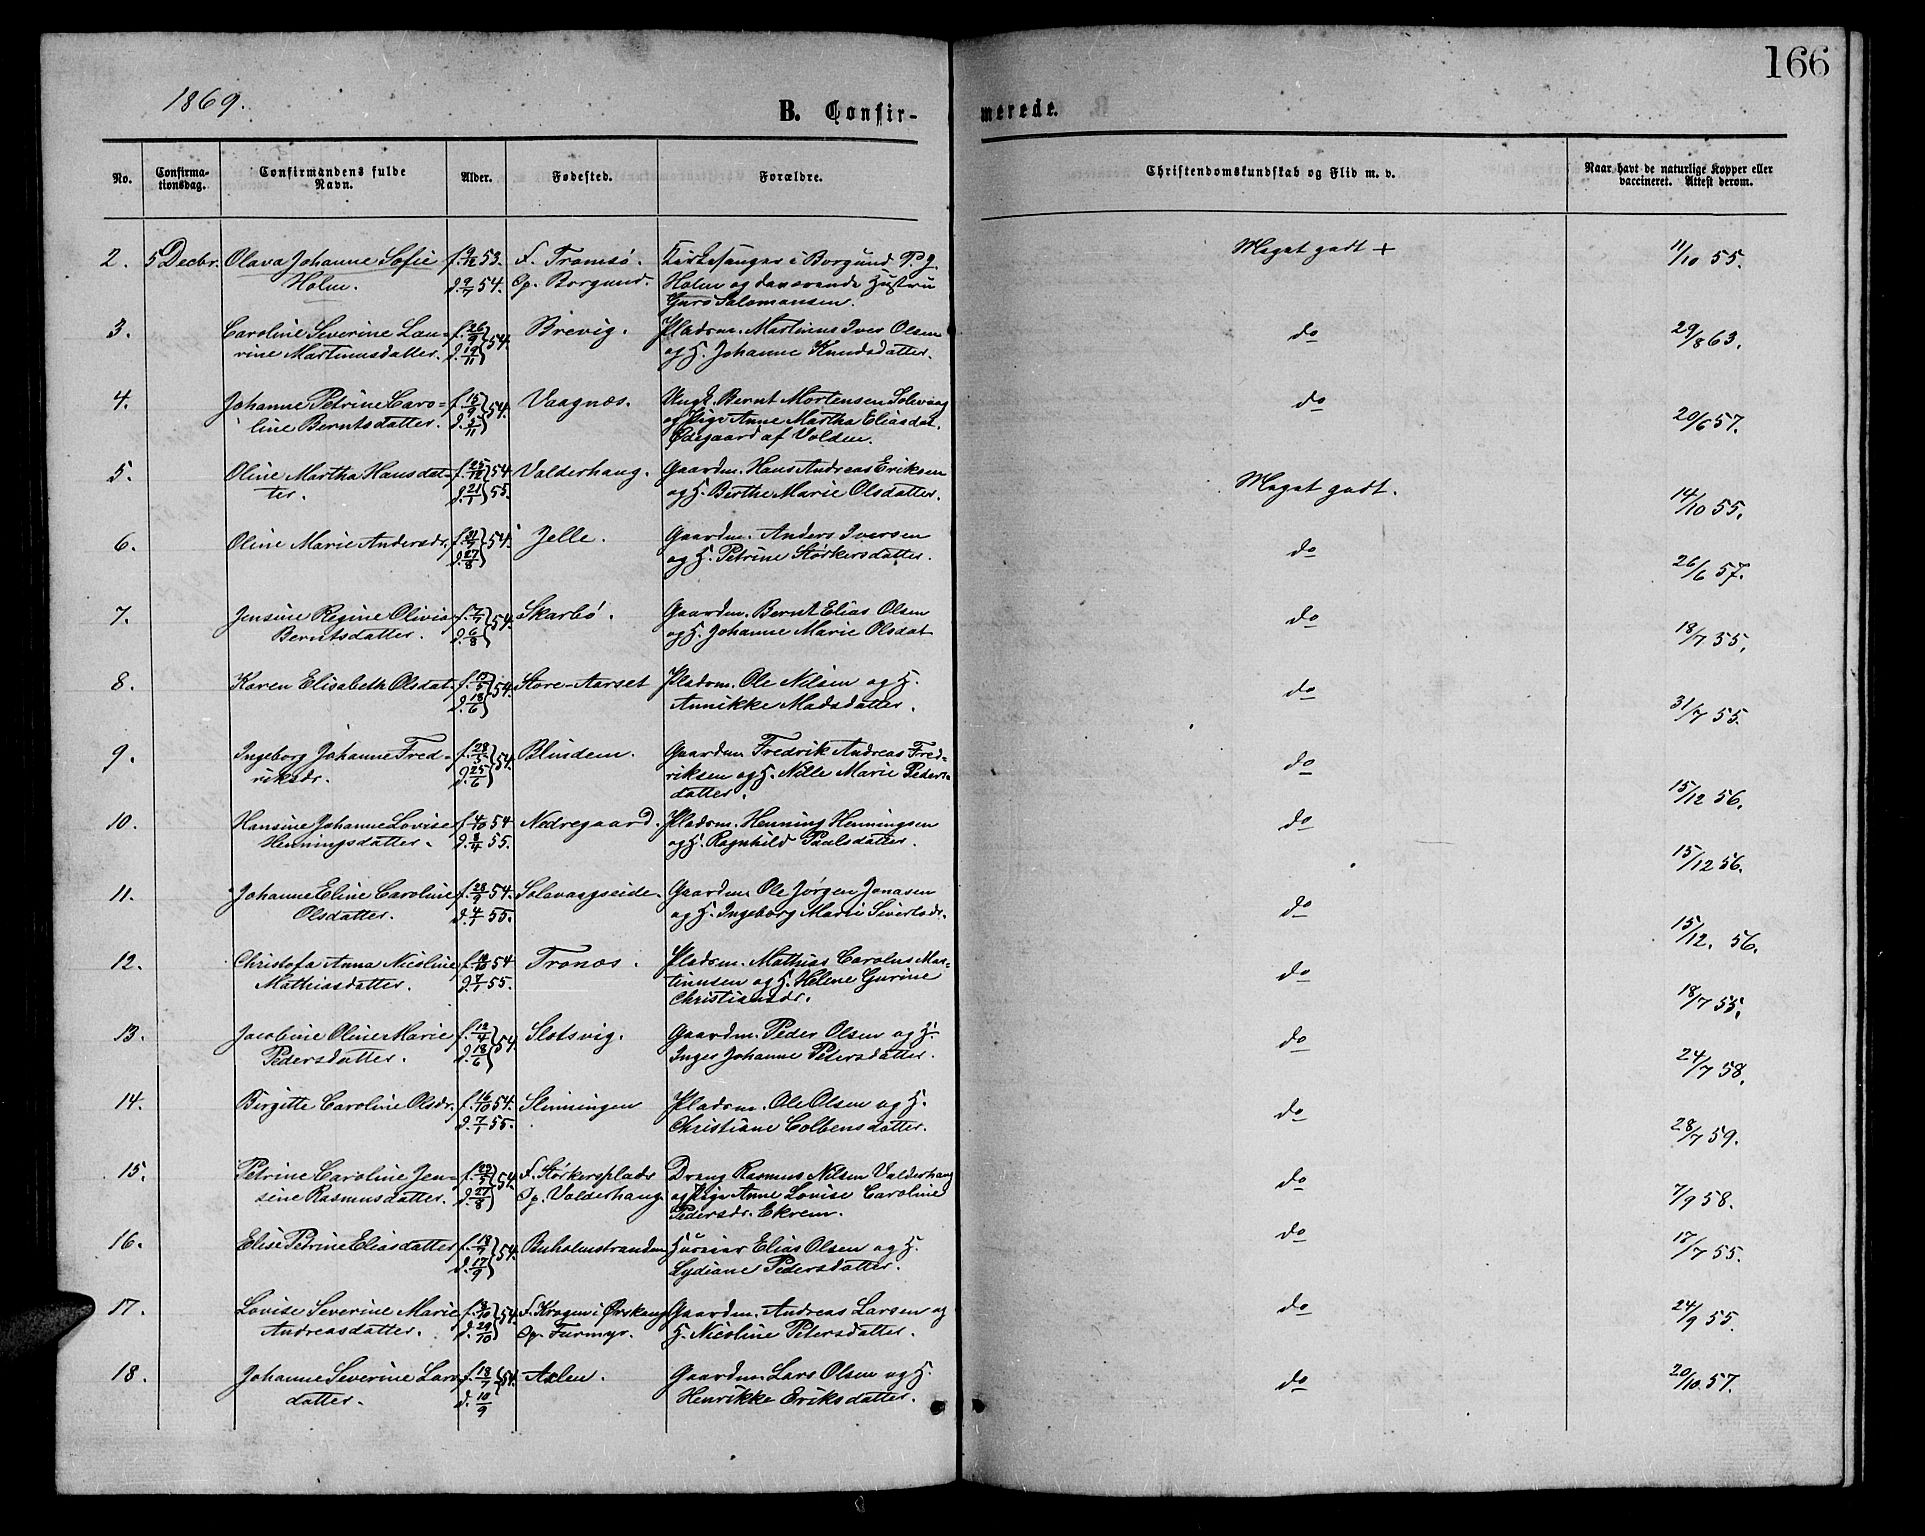 166
1869.
B. Confir-
merede.
No.
Confirma-
tionsdag.
Confirmandens fulde
Navn.
Alder.
Fødested.
Forældre.
Christendomskundskab og Flid m. v.
Naar havt de naturlige Kopper eller
vaccineret. Attest derom.
2. 5 Decbr. Olava Johanne Sofie f. 9/12 53. F. Tromsø. Kirkesanger i Borgund P. J. Meget godt + 11/10 55.
Holm. d. 2/7 54. Op. Borgund. Holm og daværende Hustru
Guro Salomonsen.
3. Caroline Severine Lau- f. 26/9 54. Brevig. Pladsm. Martinus Iver Olsen do 29/8 63.
rine Martinusdatter. d. 19/11 og H. Johanne Knudsdatter.
4. Johanne Petrine Caro- f. 15/9 54. Vaagnæs. Ungk. Bernt Mortensen Solevaag do 20/6 57.
line Berntsdatter. d. 5/11 og Pige Anne Martha Eliasdat.
Øvgaard af Volden.
5. Oline Martha Hansdat- f. 25/12 54 Valderhaug. Gaardm. Hans Andreas Eriksen Meget godt. 14/10 55.
ter. d. 21/1 55. og H. Berthe Marie Olsdatter.
6. Oline Marie Andersdr. f. 21/7 54. Jelle. Gaardm. Anders Iversen do 26/6 57.
d. 27/8 og H. Petrine Størkersdatter.
7. Jensine Regine Olivia f. 7/7 54. Skarbø. Gaardm. Bernt Elias Olsen do 18/7 55.
Berntsdatter. d. 6/8 og H. Johanne Marie Olsdat
8. Karen Elisabeth Olsdat. f. 17/5 54. Store-Aarset Pladsm. Ole Nilsen og H. do 31/7 55.
d. 18/6 Annikke Madsdatter.
9. Ingeborg Johanne Fred- f. 28/5 54. Blindem. Gaardm Fredrik Andreas Fred- do 15/12 56.
riksdr. d. 25/6 riksen og H. Nille Marie Peders-
datter.
10. Hansine Johanne Lovise f. 4/10 54 Nedregaard. Pladsm. Henning Henningsen do 15/12 56.
Henningsdatter. d. 8/4 55. og H. Ragnhild Paulsdatter.
11. Johanne Eline Caroline f. 28/9 54. Solevaagseide. Gaardm Ole Jørgen Jonasen do 15/12. 56.
Olsdatter. d. 4/1 55. og H. Ingeborg Marie Sivertsdr.
12. Christofa Anna Nicoline f. 18/10 54 Tranæs. Pladsm. Mathias Carolus Mar- do 18/7 55.
Mathiasdatter. d. 7/1 55. tinusen og H. Helene Gurine
Christiansdr.
13. Jacobine Oline Marie f. 12/4 54. Slotsvig. Gaardm. Peder Olsen og H. do 24/7 58.
Pedersdatter. d. 18/6 Inger Johanne Petersdatter.
14. Birgitte Caroline Olsdr. f. 16/10 54. Slinningen Pladsm. Ole Olsen og H. do 28/7 59.
d. 7/1 55. Christiane Colbensdatter.
15. Petrine Caroline Jen- f. 23/5 54. F. Størkersplads Dreng Rasmus Nilsen Valderhaug do 7/9 58.
sine Rasmusdatter. d. 27/8 Op. Valderhaug. og Pige Anne Lovise Caroline
Pedersdr. Ekrem.
16. Elise Petrine Eliasdatter f. 18/7 54. Buholmstranden Huseier Elias Olsen og H. do 17/7 55.
d. 17/9 Lydiane Pedersdatter.
17. Lovise Severine Marie f. 3/10 54. F. Kragen i Ørskoug Gaardm. Andreas Larsen og do 24/9 55.
Andreasdatter. d. 29/10 Op. Furmyr. H. Nicoline Petersdatter.
18. Johanne Severine Lars- f. 18/7 54. Aslen. Gaardm. Lars Olsen og H. do 20/10 57.
datter. d. 10/9 Henrikke Eriksdatter.